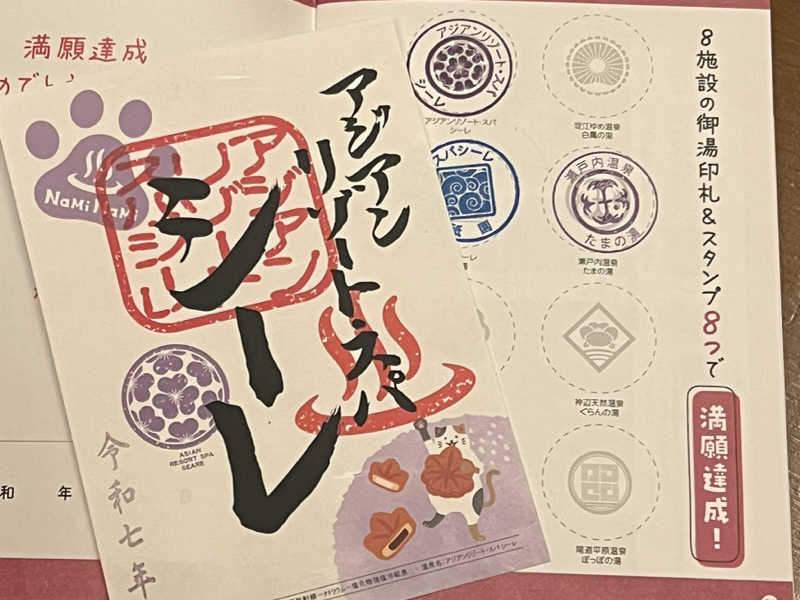 満願達成
8施設の御湯印札&スタンプ8つで
満願達成!
アジアンリゾート・スパ
シーレ
アジアンリゾート・スパ
シーレ
淀江ゆめ温泉
白鳳の里
スパシーレ
瀬戸内温泉
たまの湯
瀬戸内温泉
たまの湯
神辺天然温泉
ぐらんの湯
尾道平原温泉
ぽっぽの湯
和 年
NaMi NaMi
アジアン
リゾート・スパ
シーレ
ASIAN
RESORT SPA
SEARE
令和七年
温泉名:アジアンリゾート・スパ シーレ